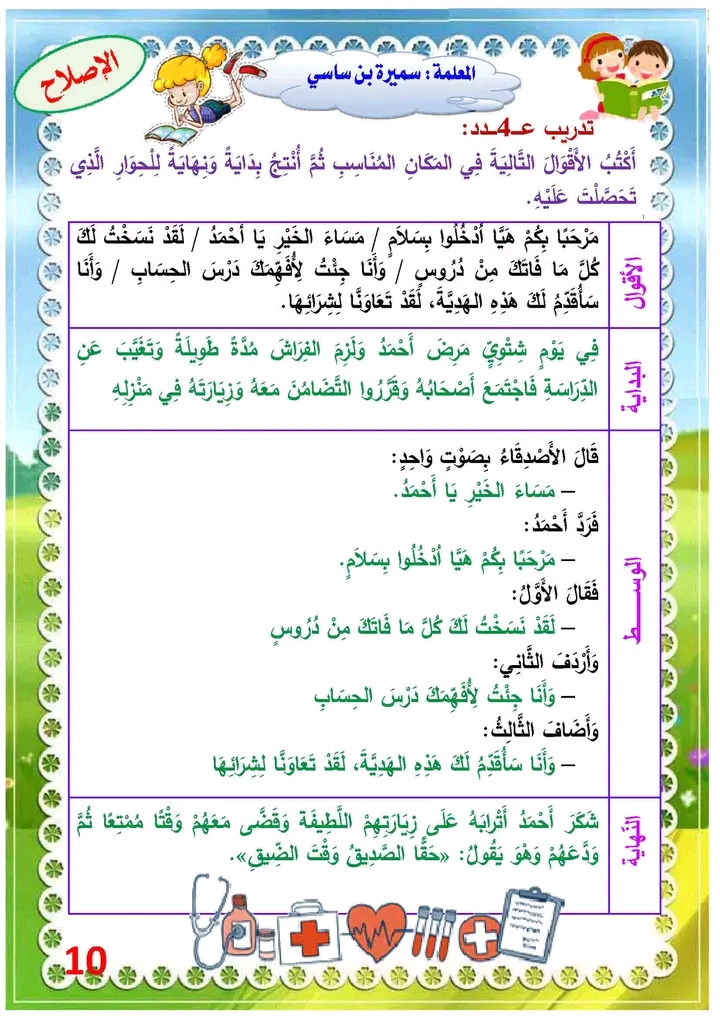 الإصلاح
المعلمة : سميرة بن ساسي
تدريب عـ4ـدد:
أَكْتُبُ الأَقْوَالَ التَّالِيَةَ فِي المَكَانِ المُنَاسِبِ ثُمَّ أُنْتِجُ بِدَايَةً وَنِهَايَةً لِلْحِوَارِ الَّذِي
تَحَصَّلْتَ عَلَيْهِ.
الأقوال
مَرْحَبًا بِكُمْ هَيَّا اُدْخُلُوا بِسَلاَمٍ / مَسَاءَ الخَيْرِ يَا أَحْمَدُ / لَقَدْ نَسَخْتُ لَكَ
كُلَّ مَا فَاتَكَ مِنْ دُرُوسٍ / وَأَنَا جِئْتُ لِأُفَهِّمَكَ دَرْسَ الحِسَابِ / وَأَنَا
سَأُقَدِّمُ لَكَ هَذِهِ الهَدِيَّةَ، لَقَدْ تَعَاوَنَّا لِشِرَائِهَا.
البداية
فِي يَوْمٍ شِتْوِيٍّ مَرِضَ أَحْمَدُ وَلَزِمَ الفِرَاشَ مُدَّةً طَوِيلَةً وَتَغَيَّبَ عَنِ
الدِّرَاسَةِ فَاجْتَمَعَ أَصْحَابُهُ وَقَرَّرُوا التَّضَامُنَ مَعَهُ وَزِيَارَتَهُ فِي مَنْزِلِهِ
الوســـــط
قَالَ الأَصْدِقَاءُ بِصَوْتٍ وَاحِدٍ:
– مَسَاءَ الخَيْرِ يَا أَحْمَدُ.
فَرَدَّ أَحْمَدُ:
– مَرْحَبًا بِكُمْ هَيَّا اُدْخُلُوا بِسَلاَمٍ.
فَقَالَ الأَوَّلُ:
– لَقَدْ نَسَخْتُ لَكَ كُلَّ مَا فَاتَكَ مِنْ دُرُوسٍ
وَأَرْدَفَ الثَّانِي:
– وَأَنَا جِئْتُ لِأُفَهِّمَكَ دَرْسَ الحِسَابِ
وَأَضَافَ الثَّالِثُ:
– وَأَنَا سَأُقَدِّمُ لَكَ هَذِهِ الهَدِيَّةَ، لَقَدْ تَعَاوَنَّا لِشِرَائِهَا
النهاية
شَكَرَ أَحْمَدُ أَتْرَابَهُ عَلَى زِيَارَتِهِمْ اللَّطِيفَة وَقَضَّى مَعَهُمْ وَقْتًا مُمْتِعًا ثُمَّ
وَدَّعَهُمْ وَهْوَ يَقُولُ: «حَقًّا الصَّدِيقُ وَقْتَ الضِّيقِ».
10